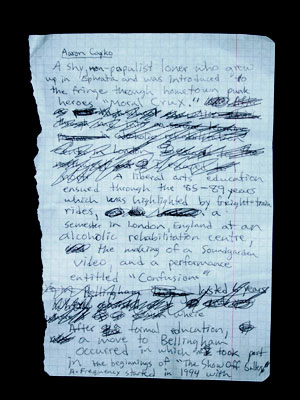 Aaron
A shy, non-populist loner who grew
up in Ephrata and was introduced to
the fringe through hometown punk
heroes "Moral Crux."
A liberal arts education
ensued through the '85-'89 years
which was highlighted by freight-train
rides, a
semester in London, England at an
alcoholic rehabilitation centre
the making of a Soundgarden
video, and a performance
entitled "Confusion"
Bellingham
where
After formal education,
a move to Bellingham
occurred in which took part
in the beginnings of "The Show Off Gallery"
A-Frequency started in 1994 with